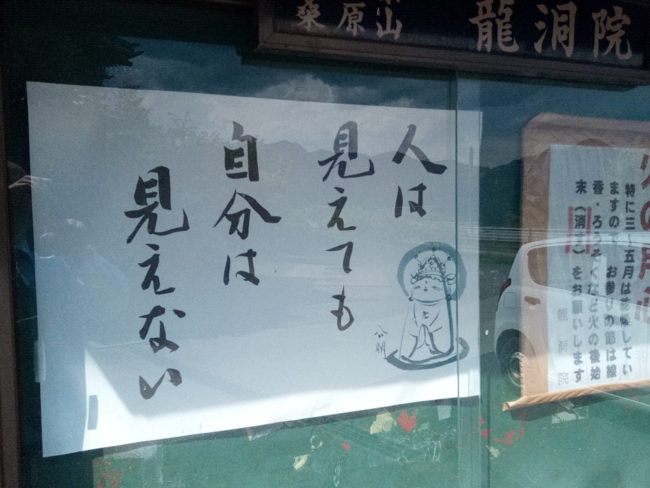 桑原山 龍洞院
人は
見えても
自分は
見えない
火の用心
特に三～五月は乾燥してい
ますので、お参りの節は線
香・ろうそくなど火の後始
末（消す）をお願いします
龍洞院